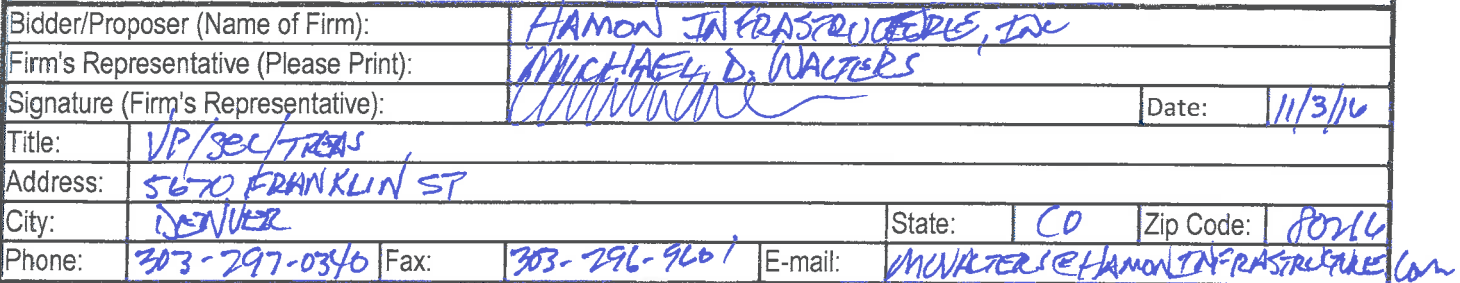 Bidder/Proposer (Name of Firm): HAMON INFRASTRUCTURE, INC
Firm's Representative (Please Print): MICHAEL D. WALTERS
Signature (Firm's Representative): Date: 11/3/16
Title: VP/SEC/TREAS
Address: 5670 FRANKLIN ST
City: DENVER State: CO Zip Code: 80216
Phone: 303-297-0340 Fax: 303-296-9601 E-mail: MWALTERS@HAMONINFRASTRUCTURE.COM